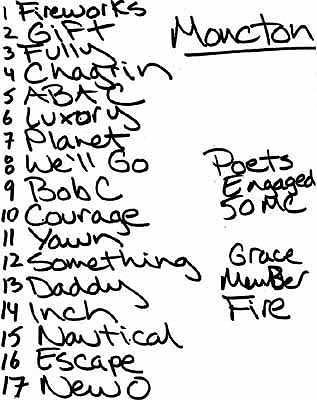 Moncton
1 Fireworks
2 Gift
3 Fully
4 Chagrin
5 ABAC
6 Luxory
7 Planet
8 We'll Go
9 Bob C
10 Courage
11 Yawn
12 Something
13 Daddy
14 Inch
15 Nautical
16 Escape
17 New O
Poets
Engaged
50 MC
Grace
Member
Fire